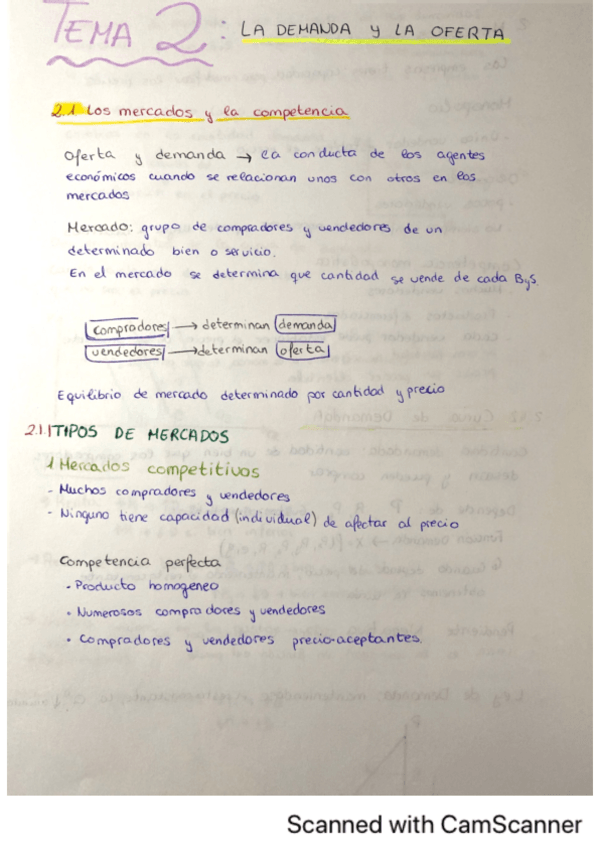 TEMA 2: LA DEMANDA y LA OFERTA
2.1 Los mercados y la competencia
Oferta y demanda → la conducta de los agentes
económicos cuando se relacionan unos con otros en los
mercados
Mercado: grupo de compradores y vendedores de un
determinado bien o servicio.
En el mercado se determina que cantidad se vende de cada ByS.
compradores → determinan demanda
vendedores → determinan oferta
Equilibrio de mercado determinado por cantidad y precio
2.1.1 TIPOS DE MERCADOS
1 Mercados competitivos
- Muchos compradores y vendedores
- Ninguno tiene capacidad (individual) de afectar al precio
Competencia perfecta
• Producto homogeneo
• Numerosos compradores y vendedores
• Compradores y vendedores precio-aceptantes.
Scanned with CamScanner